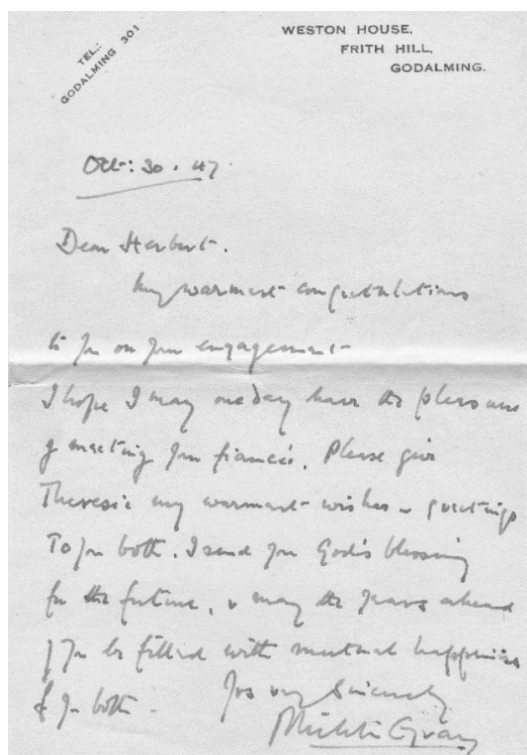 TEL.:
GODALMING 301
WESTON HOUSE,
FRITH HILL,
GODALMING.
Oct: 30. 47.
Dear Herbert.
My warmest congratulations
to you on your engagement
I hope I may one day have the pleasure
of meeting your fiancée. Please give
my warmest wishes & greetings
To you both. I send you God's blessing
for the future, & may the years ahead
of you be filled with mutual happiness
for you both.
Yrs very Sincerely